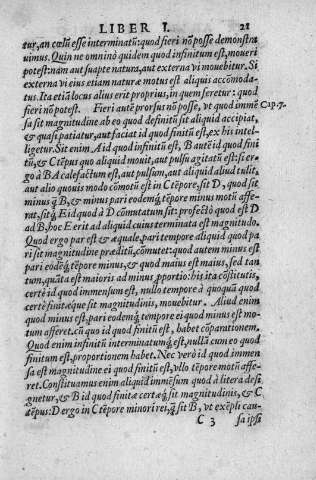 LIBER I. 21
tur, an cœlū esse interminatū: quod fieri nō posse demonstra
uimus. Quin ne omnino quidem quod infinitum est, moueri
potest: nam aut suapte natura, aut externa vi mouebitur. Si
externa vi eius etiam naturæ motus est aliquis accōmoda-
tus. Ita etiā locus alius erit proprius, in quem feretur: quod
fieri nō potest. Fieri autē prorsus nō posse, vt quod immē Cap.7.
sa sit magnitudine ab eo quod definitū sit aliquid accipiat,
& quasi patiatur, aut faciat id quod finitū est, ex his intelli-
getur. Sit enim A id quod infinitū est, B autē id quod fini
tū, & C tēpus quo aliquid mouit, aut pulsu agitatū est: si er-
go à B A calefactum est, aut pulsum, aut aliquid aliud tulit,
aut alio quouis modo cōmotū est in C tēpore, sit D, quod sit
minus q̄ B, & minus pari eodemq́ tēpore minus motū affe-
rat, sitq́ E id quod à D cōmutatum sit: profectò quod est D
ad B, hoc E erit ad aliquid cuius terminata est magnitudo.
Quod ergo par est & æquale, pari tempore aliquid quod pa
ri sit magnitudine præditū, cōmutet: quod autem minus est
pari eodemq́ tēpore minus, & quod maius est maius, sed tan
tum, quāta est maioris ad minus ꝓportio: his ita cōstitutis,
certè id quod immensum est, nullo tempore à quoquā quod
certæ finitæque sit magnitudinis, mouebitur. Aliud enim
quod minus est, pari eodemq́ tempore ei quod minus est mo-
tum afferet. cū quo id quod finitū est, habet cōparationem.
Quod enim infinitū interminatumq́ est, nullā cum eo quod
finitum est, proportionem habet. Nec verò id quod immen
sa est magnitudine ei quod finitū est, vllo tēpore motū affe-
ret. Constituamus enim aliquid immēsum quod à litera desi
gnetur, & B id quod finitæ certæq́ sit magnitudinis, & C
tēpus: D ergo in C tēpore minori rei, q̄ sit B, vt exēpli cau-
C 3 sa ipsi